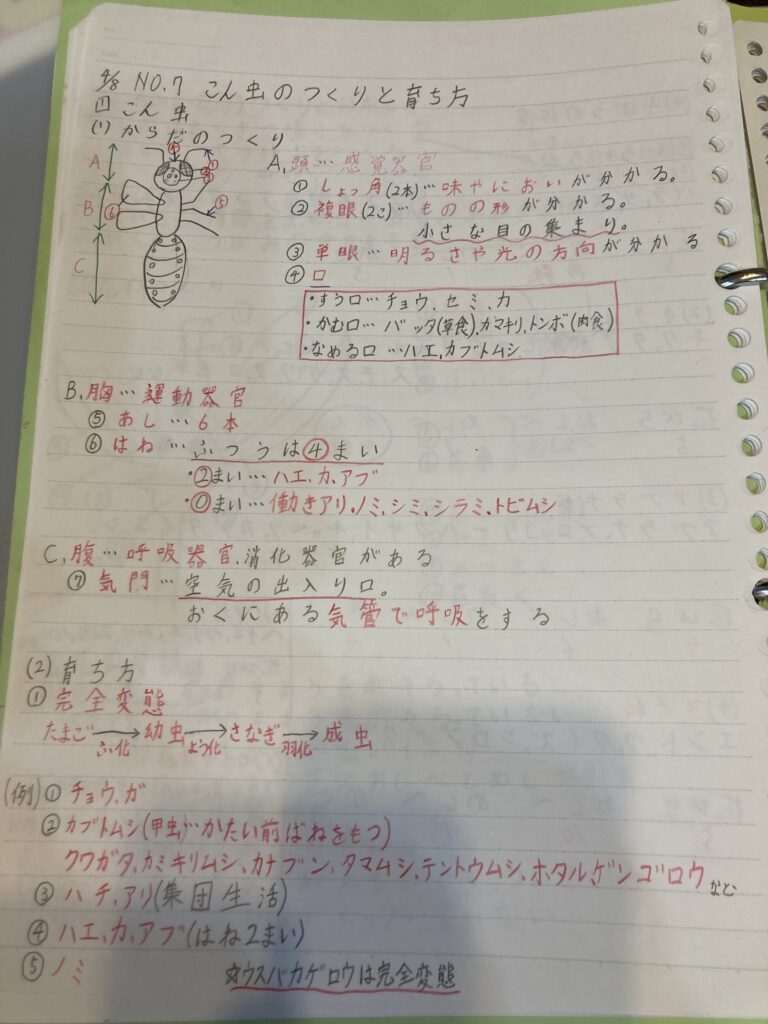 4/8 NO.7 こん虫のつくりと育ち方
1 こん虫
(1) からだのつくり
A
B
C
④
①
②
③
⑤
⑥
A. 頭…感覚器官
① しょっ角(2本)…味やにおいが分かる。
② 複眼(2こ)…ものの形が分かる。
小さな目の集まり。
③ 単眼…明るさや光の方向が分かる
④ 口
・すう口…チョウ、セミ、カ
・かむ口…バッタ(草食)、カマキリ、トンボ(肉食)
・なめる口…ハエ、カブトムシ
B. 胸…運動器官
⑤ あし…6本
⑥ はね…ふつうは④まい
・②まい…ハエ、カ、アブ
・⓪まい…働きアリ、ノミ、シミ、シラミ、トビムシ
C. 腹…呼吸器官、消化器官がある
⑦ 気門…空気の出入り口。
おくにある気管で呼吸をする
(2) 育ち方
① 完全変態
たまご→幼虫→さなぎ→成虫
ふ化 よう化 羽化
(例) ① チョウ、ガ
② カブトムシ(甲虫)…かたい前ばねをもつ)
クワガタ、カミキリムシ、カナブン、タマムシ、テントウムシ、ホタル、ゲンゴロウなど
③ ハチ、アリ(集団生活)
④ ハエ、カ、アブ(はね2まい)
⑤ ノミ ☆ウスバカゲロウは完全変態